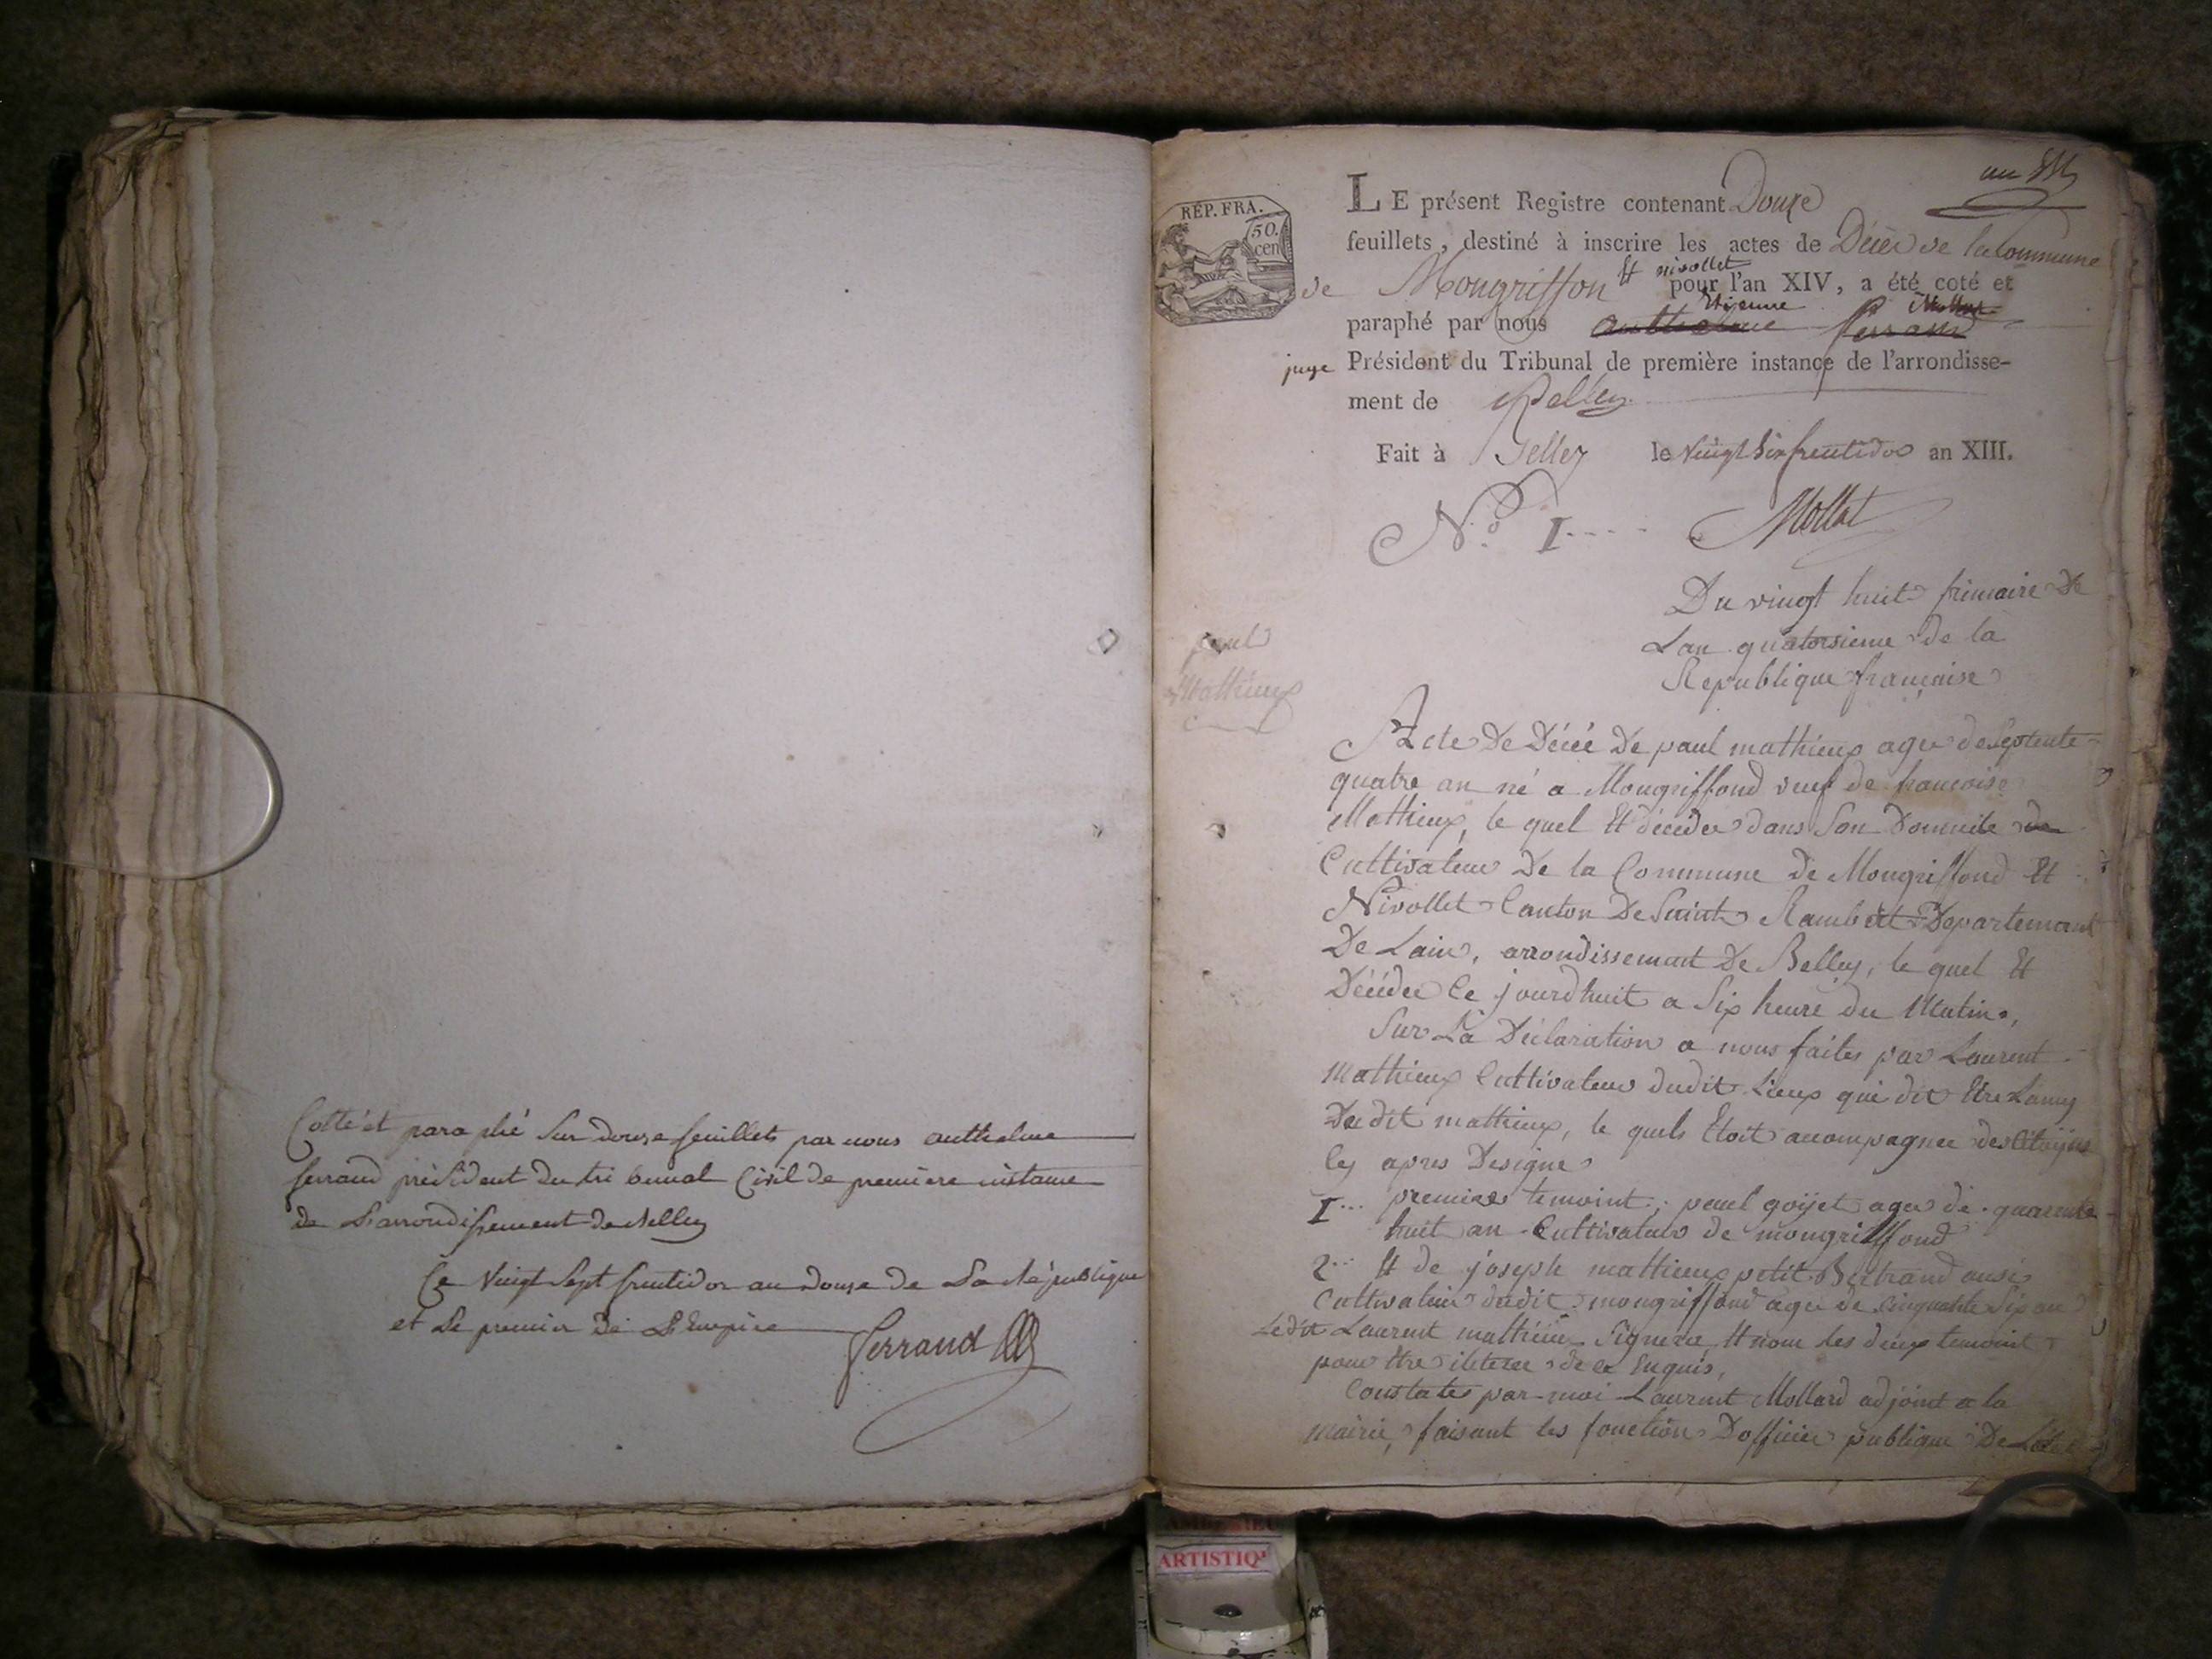 Cotté et paraphé sur douze feuillets par nous anthelme
ferrand président du tribunal Civil de premiere instance
de L'arrondissement de Belley
Ce vingt sept fructidor an douze de La République
et Le premier de L'Empire
ferrand
an XIV
RÉP. FRA.
50.
cen
LE présent Registre contenant Douze
feuillets, destiné à inscrire les actes de Décès de la Commune
de Mongriffon Et nivollet pour l'an XIV, a été coté et
Etienne Mollet
paraphé par nous anthelme ferrand
juge Président du Tribunal de première instance de l'arrondisse-
ment de Belley
Fait à Belley le vingt six fructidor an XIII.
N.º I.... Mollet
Du vingt huit frimaire De
Lan quatorsieme de la
Republique française
paul
Mathieux
Acte De Décée De paul mathieux agee de Septente
quatre an né a Mongriffond veuf de francoise
Mathieux, le quel Et décédee dans Son Domicile de
Cultivateur De la Commune de Mongriffond Et
Nivollet Canton De Saint Rambert Departement
De Lain, arrondissemant De Belley, le quel Et
Décédee le jourdhuit a Six heure du Matin,
Sur La Déclaration a nous faites par Laurent
Mathieux Cultivateur dudit Lieux qui dit Etre Lamy
Du dit mathieux, le quels Etoit acompagnee des Citoijens
Cy apres Designe
I... premier temoint; paul goyet agee de quarente
huit an Cultivateur de mongriffond
2... Et de joseph mathieux petit Bertrand ausi
Cultivateur dudit mongriffond agee de cinquante Six an
Ledit Laurent mathieux Signera Et nom les deux temoint
pour Etre ileteree de ce Enquis,
Constatee par moi Laurent Mollard adjoint a la
mairie, faisant les fonction Dofficier publique De Létat
ARTISTIQ